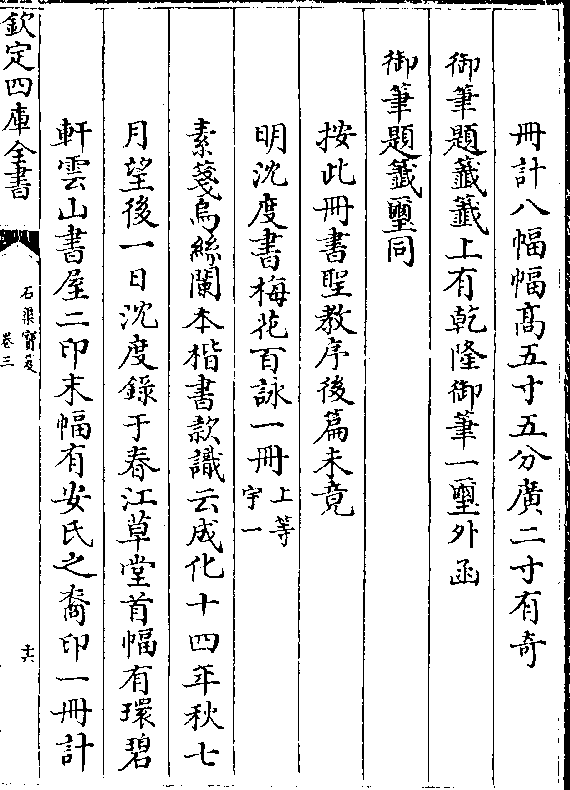 冊計八幅幅髙五寸五分廣二寸有奇
御筆題籤籤上有乾隆御筆一璽外函
御筆題籤璽同
按此冊書聖教序後篇未竟
明沈度書梅花百詠一冊上等
宇一
素箋烏絲闌本楷書款識云成化十四年秋七
月望後一日沈度錄于春江草堂首幅有環碧
軒雲山書屋二印末幅有安氏之裔印一冊計
欽定四庫全書
石渠寳笈
卷三
十六